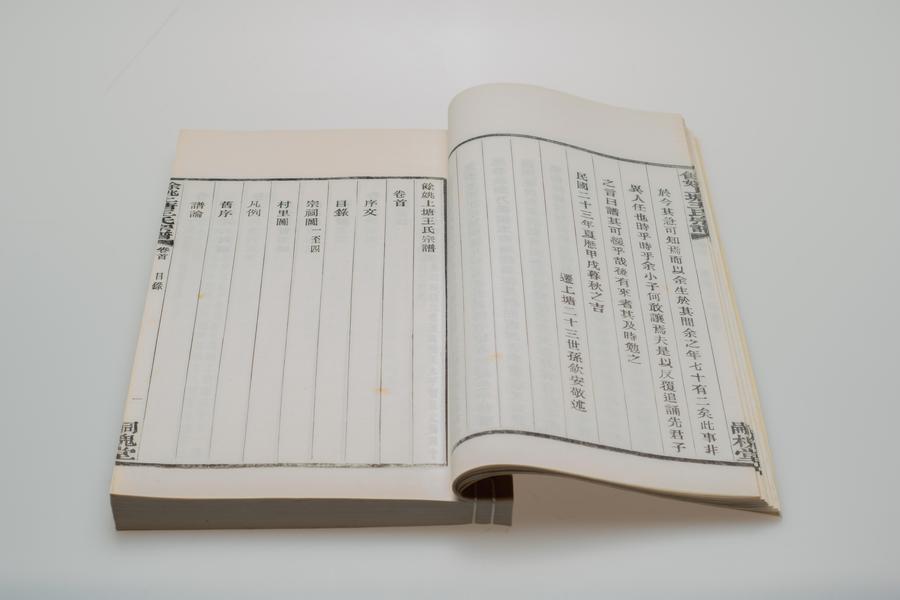 於今其急可知焉而以余生於其間余之年七十有二矣此事非
異人任也時乎時乎余小子何敢讓焉夫是以反覆追誦先君子
之言曰譜其可緩乎哉後有來者其及時勉之
民國二十三年夏曆甲戌暮秋之吉
遷上塘二十三世孫欽安敬述
餘姚上塘王氏宗譜
卷首
序文
目錄
宗祠圖一至四
村里圖
凡例
舊序
譜論
餘姚上塘王氏宗譜
卷首
目錄
一
嗣槐堂